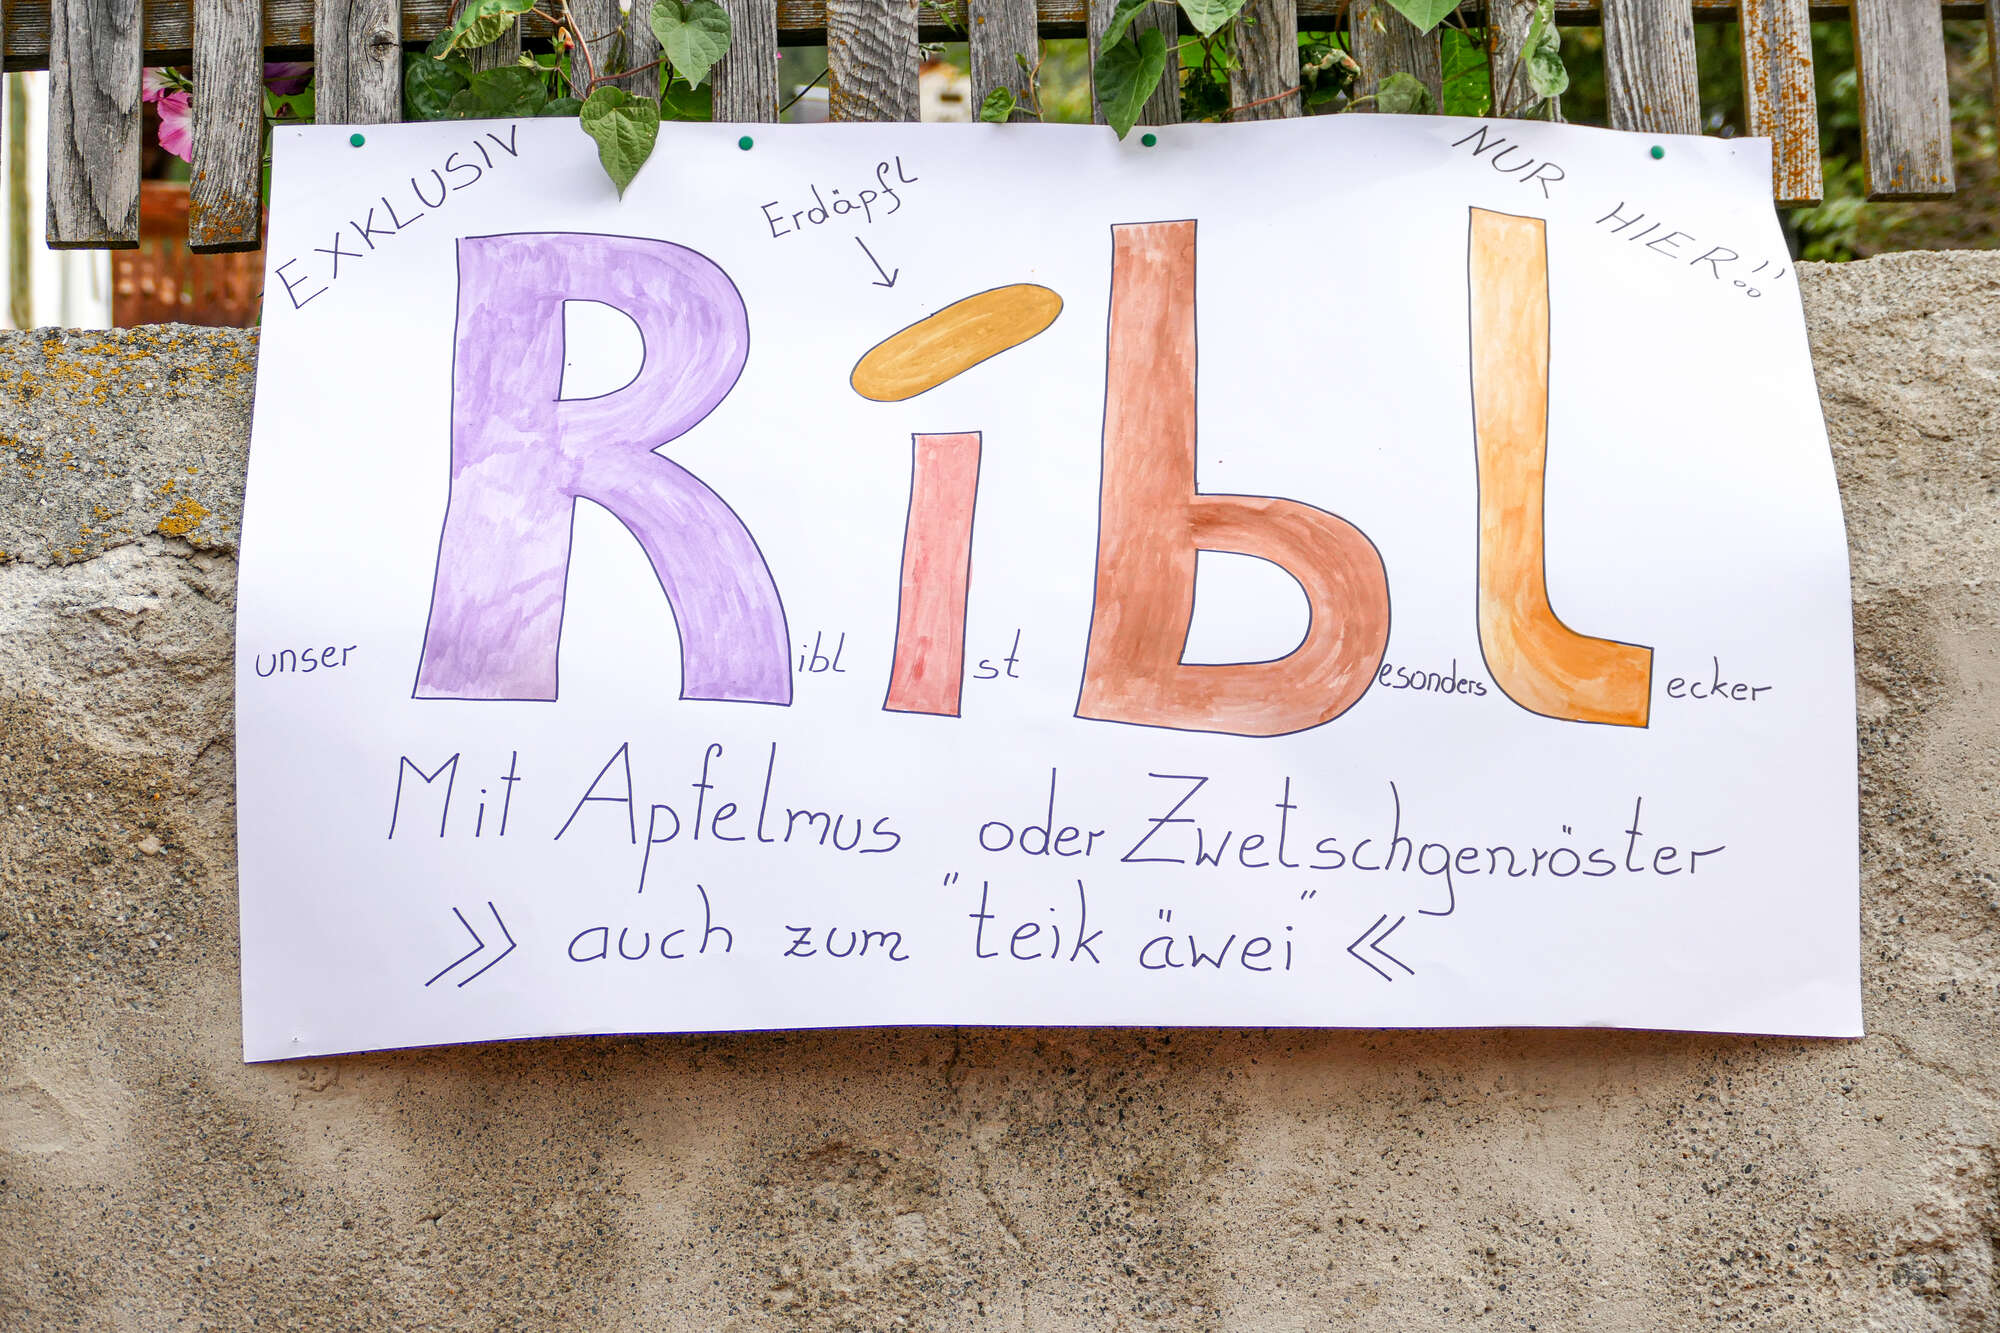 EXKLUSIV
Erdäpfl
NUR HIER!!
Ribl
unser Ribl ist besonders lecker
Mit Apfelmus oder Zwetschgenröster
» auch zum "teik äwei" «